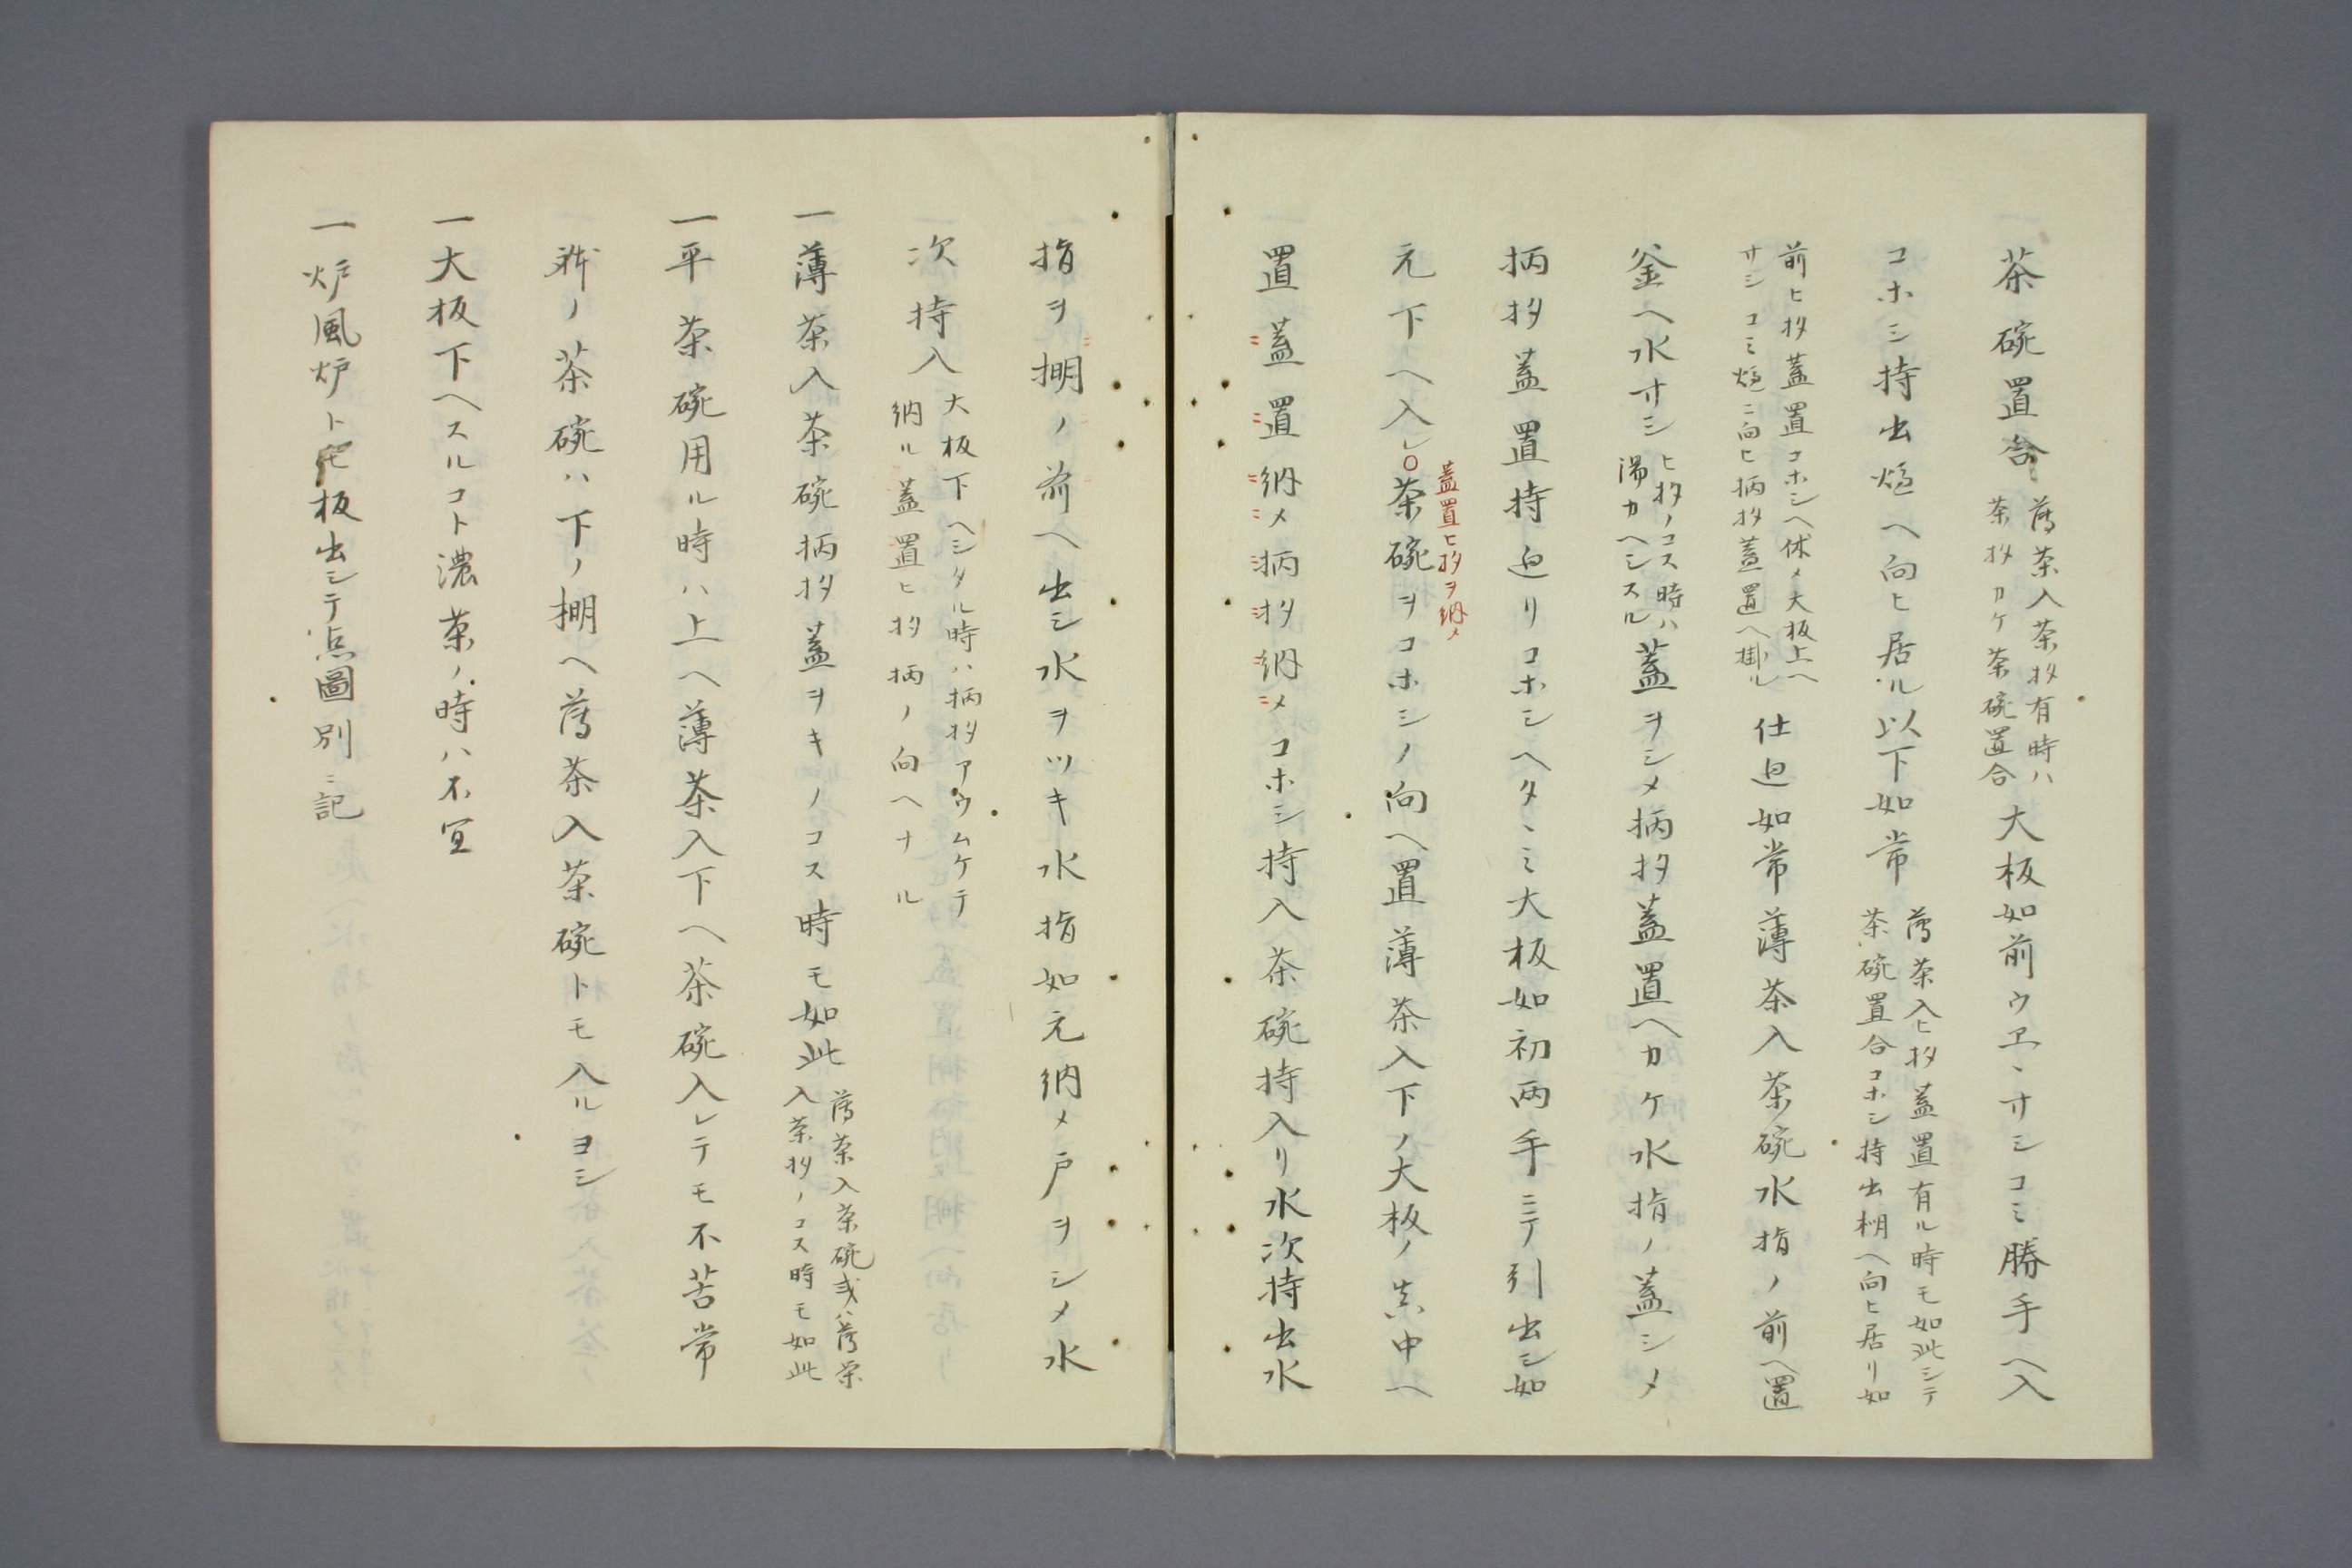 茶碗置合
薄茶入茶杓有時ハ
茶杓カケ茶碗置合
大板如前ウヱヽサシコミ勝手ヘ入
コホシ持出炉ヘ向ヒ居ル以下如常
薄茶入ヒ杓蓋置有ル時モ如此シテ
茶碗置合コホシ持出棚ヘ向ヒ居リ如
前ヒ杓蓋置コホシヘ休メ大板上ヘ
サシコミ炉ニ向ヒ柄杓蓋置ヘ掛ル
仕廻如常薄茶入茶碗水指ノ前ヘ置
釜ヘ水サシ
ヒ杓ノコス時ハ
湯カヘシスル
蓋ヲシメ柄杓蓋置ヘカケ水指ノ蓋シメ
柄杓蓋置持廻リコホシヘタヽミ大板如初両手ニテ引出シ如
元下ヘ入レ○茶碗ヲコホシノ向ヘ置薄茶入下ノ大板ノ真中ヘ
蓋置ヒ杓ヲ納メ
置蓋置納メ柄杓納メコホシ持入茶碗持入リ水次持出水
指ヲ棚ノ前ヘ出シ水ヲツキ水指如元納メ戸ヲシメ水
次持入
大板下ヘシタル時ハ柄杓アウムケテ
納ル蓋置ヒ杓柄ノ向ヘナル
一薄茶入茶碗柄杓蓋ヲキノコス時モ如此
薄茶入茶碗或ハ薄茶
入茶杓ノコス時モ如此
一平茶碗用ル時ハ上ヘ薄茶入下ヘ茶碗入レテモ不苦常
ノ茶碗ハ下ノ棚ヘ薄茶入茶碗トモ入ルヨシ
一大板下ヘスルコト濃茶ノ時ハ不宜
一炉風炉トモ板出シテ点圖別ニ記